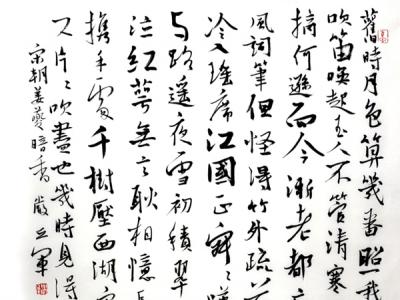 舊時月色算幾番照我
吹笛喚起玉人不管清寒
摘何遜而今漸老都忘
風詞筆但怪得竹外疏花
冷入瑤席江國正寂
与路遙夜雪初積翠
泣紅萼無言耿相憶長
攜手處千樹壓西湖寒
又片〻吹盡也幾時見得
宋朝姜夔暗香 嚴立軍